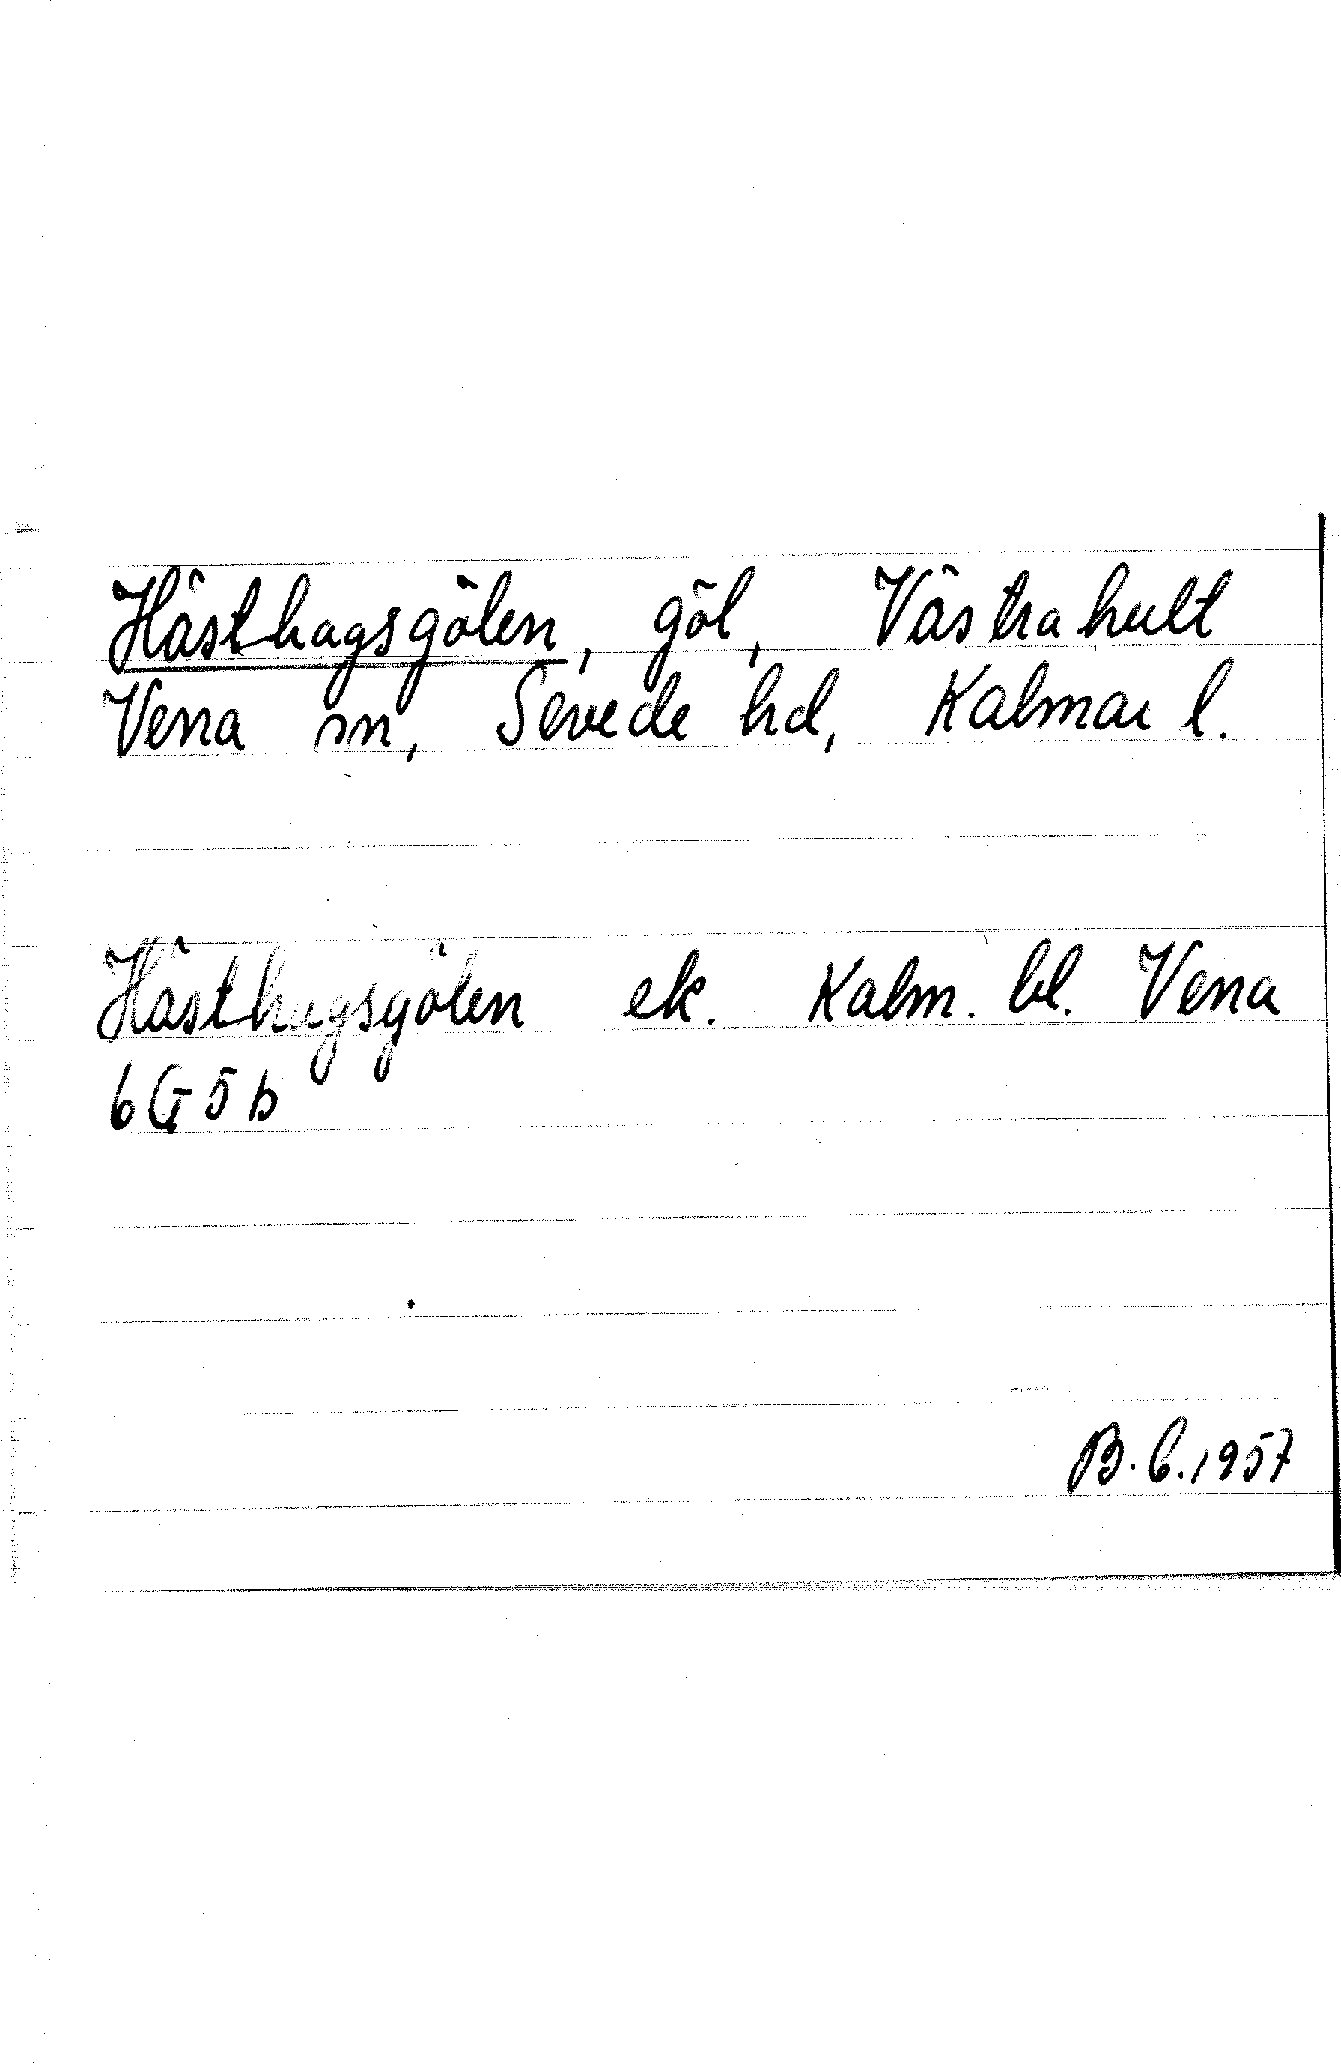 Hästhagsgölen, göl, Västrahult
Vena sn, Sevede hd, Kalmar l.
Hästhagsgölen ek. Kalm. bl. Vena
6G5b
B. C. 1957